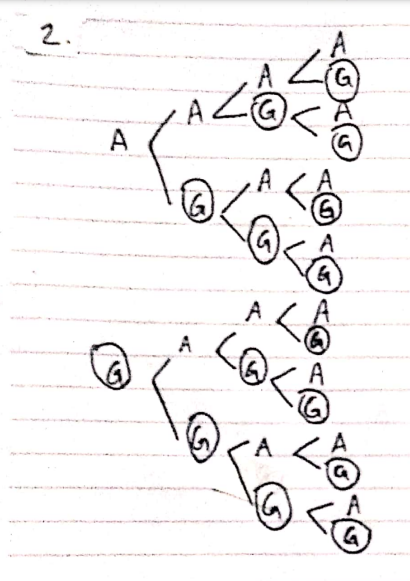 2.
A
A G
A A G A
G
A A
G G
G A
G
A A
A G
G G A
G
G A A
G
G A
G